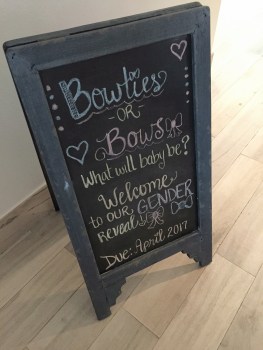 Bowties
-OR-
Bows
What will baby be?
Welcome
to OUR GENDER
Reveal Day
Due: April 2017